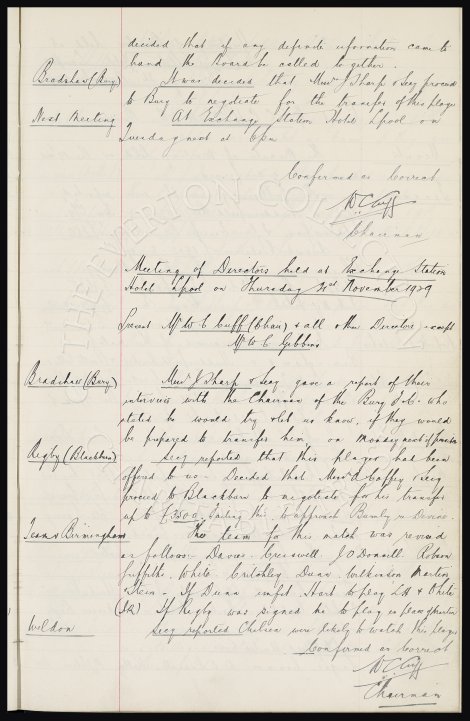 decided that if any definite information came to
hand the Board be called together.
Bradshaw (Bury) It was decided that Messrs J Sharp & Secy proceed
to Bury to negotiate for the transfer of this player
Next Meeting At Exchange Station Hotel Lpool on
Tuesday next at 6pm
Confirmed as Correct
W C Cuff
Chairman
Meeting of Directors held at Exchange Station
Hotel Lpool on Thursday 21st November 1929
Present Mr W C Cuff (Chair) & all other Directors except
Mr W C Gibbins
Bradshaw (Bury) Messrs J Sharp & Secy gave a report of their
interview with the Chairman of the Bury F.C. who
stated he would try & let us know, if they would
be prepared to transfer him, on Monday next
Rigby (Blackburn) Secy reported that this player had been
offered to us. Decided that Messrs A Gaffey & Secy
proceed to Blackburn to negotiate for his transfer
up to £3500, failing this to approach Burnley re Devine.
Team v Birmingham The team for this match was revised
as follows:- Davies. Cresswell. J O'Donnell. Robson
Griffiths. White. Critchley. Dunn. Wilkinson. Martin
& Stein. If Dunn unfit Hart to play L H & White
(IR) If Rigby was signed he to play in place of Martin
Weldon Secy reported Chelsea were likely to watch this player
Confirmed as Correct
W C Cuff
Chairman
THE EVERTON COLLECTION